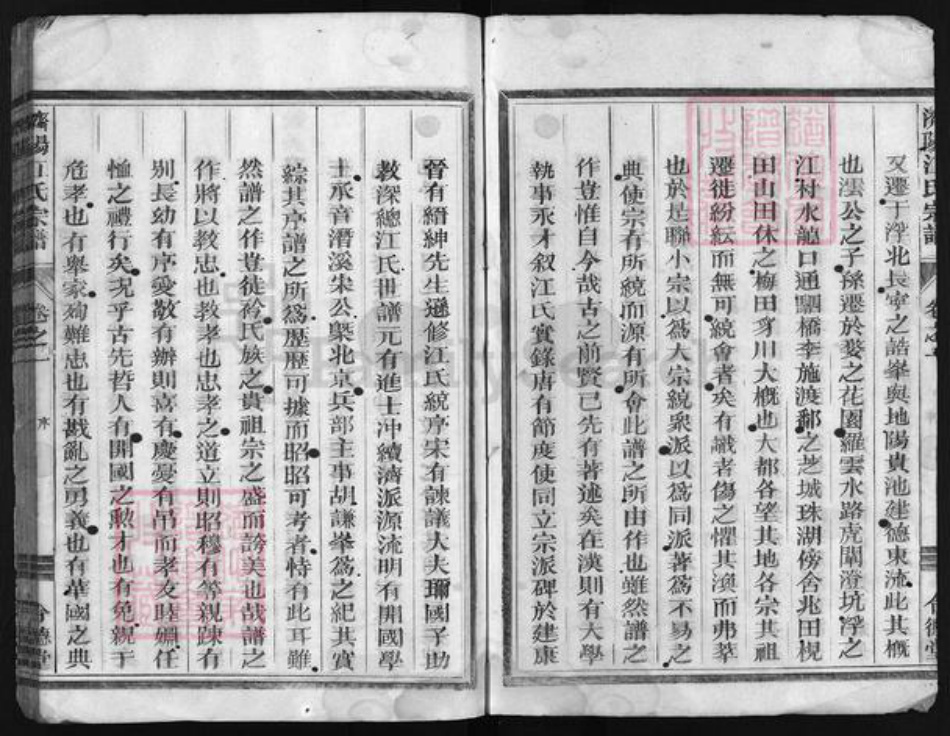 濟陽江氏宗譜 卷之一
又遷于浮北長寧之誥峯與地陽貴池建德東流此其概
也澐公之子孫遷於婺之花園羅雲水路虎閘澄坑浮之
江村水龍口通駟橋李施渡鄱之芝城珠湖傍舍兆田梘
田山田休之梅田穿川大概也大都各望其地各宗其祖
遷徙紛紜而無可統會者矣有識者傷之懼其渙而弗萃
也於是聯小宗以為大宗統衆派以為同派著為不易之
典使宗有所統而源有所會此譜之所由作也雖然譜之
作豈惟自今哉古之前賢已先有著述矣在漢則有大學
執事汞才叙江氏實錄唐有節度使同立宗派碑於建康
晉有縉紳先生遜修江氏統序宋有諫議大夫瓓國子助
教深總江氏世譜元有進士冲續濟派源流明有開國學
士承音潛溪宋公槩北京兵部主事胡謙峯為之紀其實
綜其序譜之所為歷歷可據而昭昭可考者恃有此耳雖
然譜之作豈徒衿氏族之貴祖宗之盛而誇美也哉譜之
作將以教忠也教孝也忠孝之道立則昭穆有等親疎有
别長幼有序愛敬有辦則喜有慶憂有吊而孝友睦婣任
恤之禮行矣况乎古先哲人有開國之勲才也有免親于
危孝也有舉家殉難忠也有戡亂之勇義也有華國之典
濟陽江氏宗譜 卷之一 序